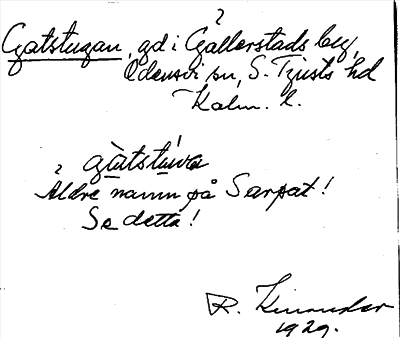 ?
Gatstugan, gd i Gallerstads by,
Odensvi sn, S. Tjusts hd
Kalm. l.
gàtstúva
? Äldre namn på Sarpat!
Se detta!
R.
1929.